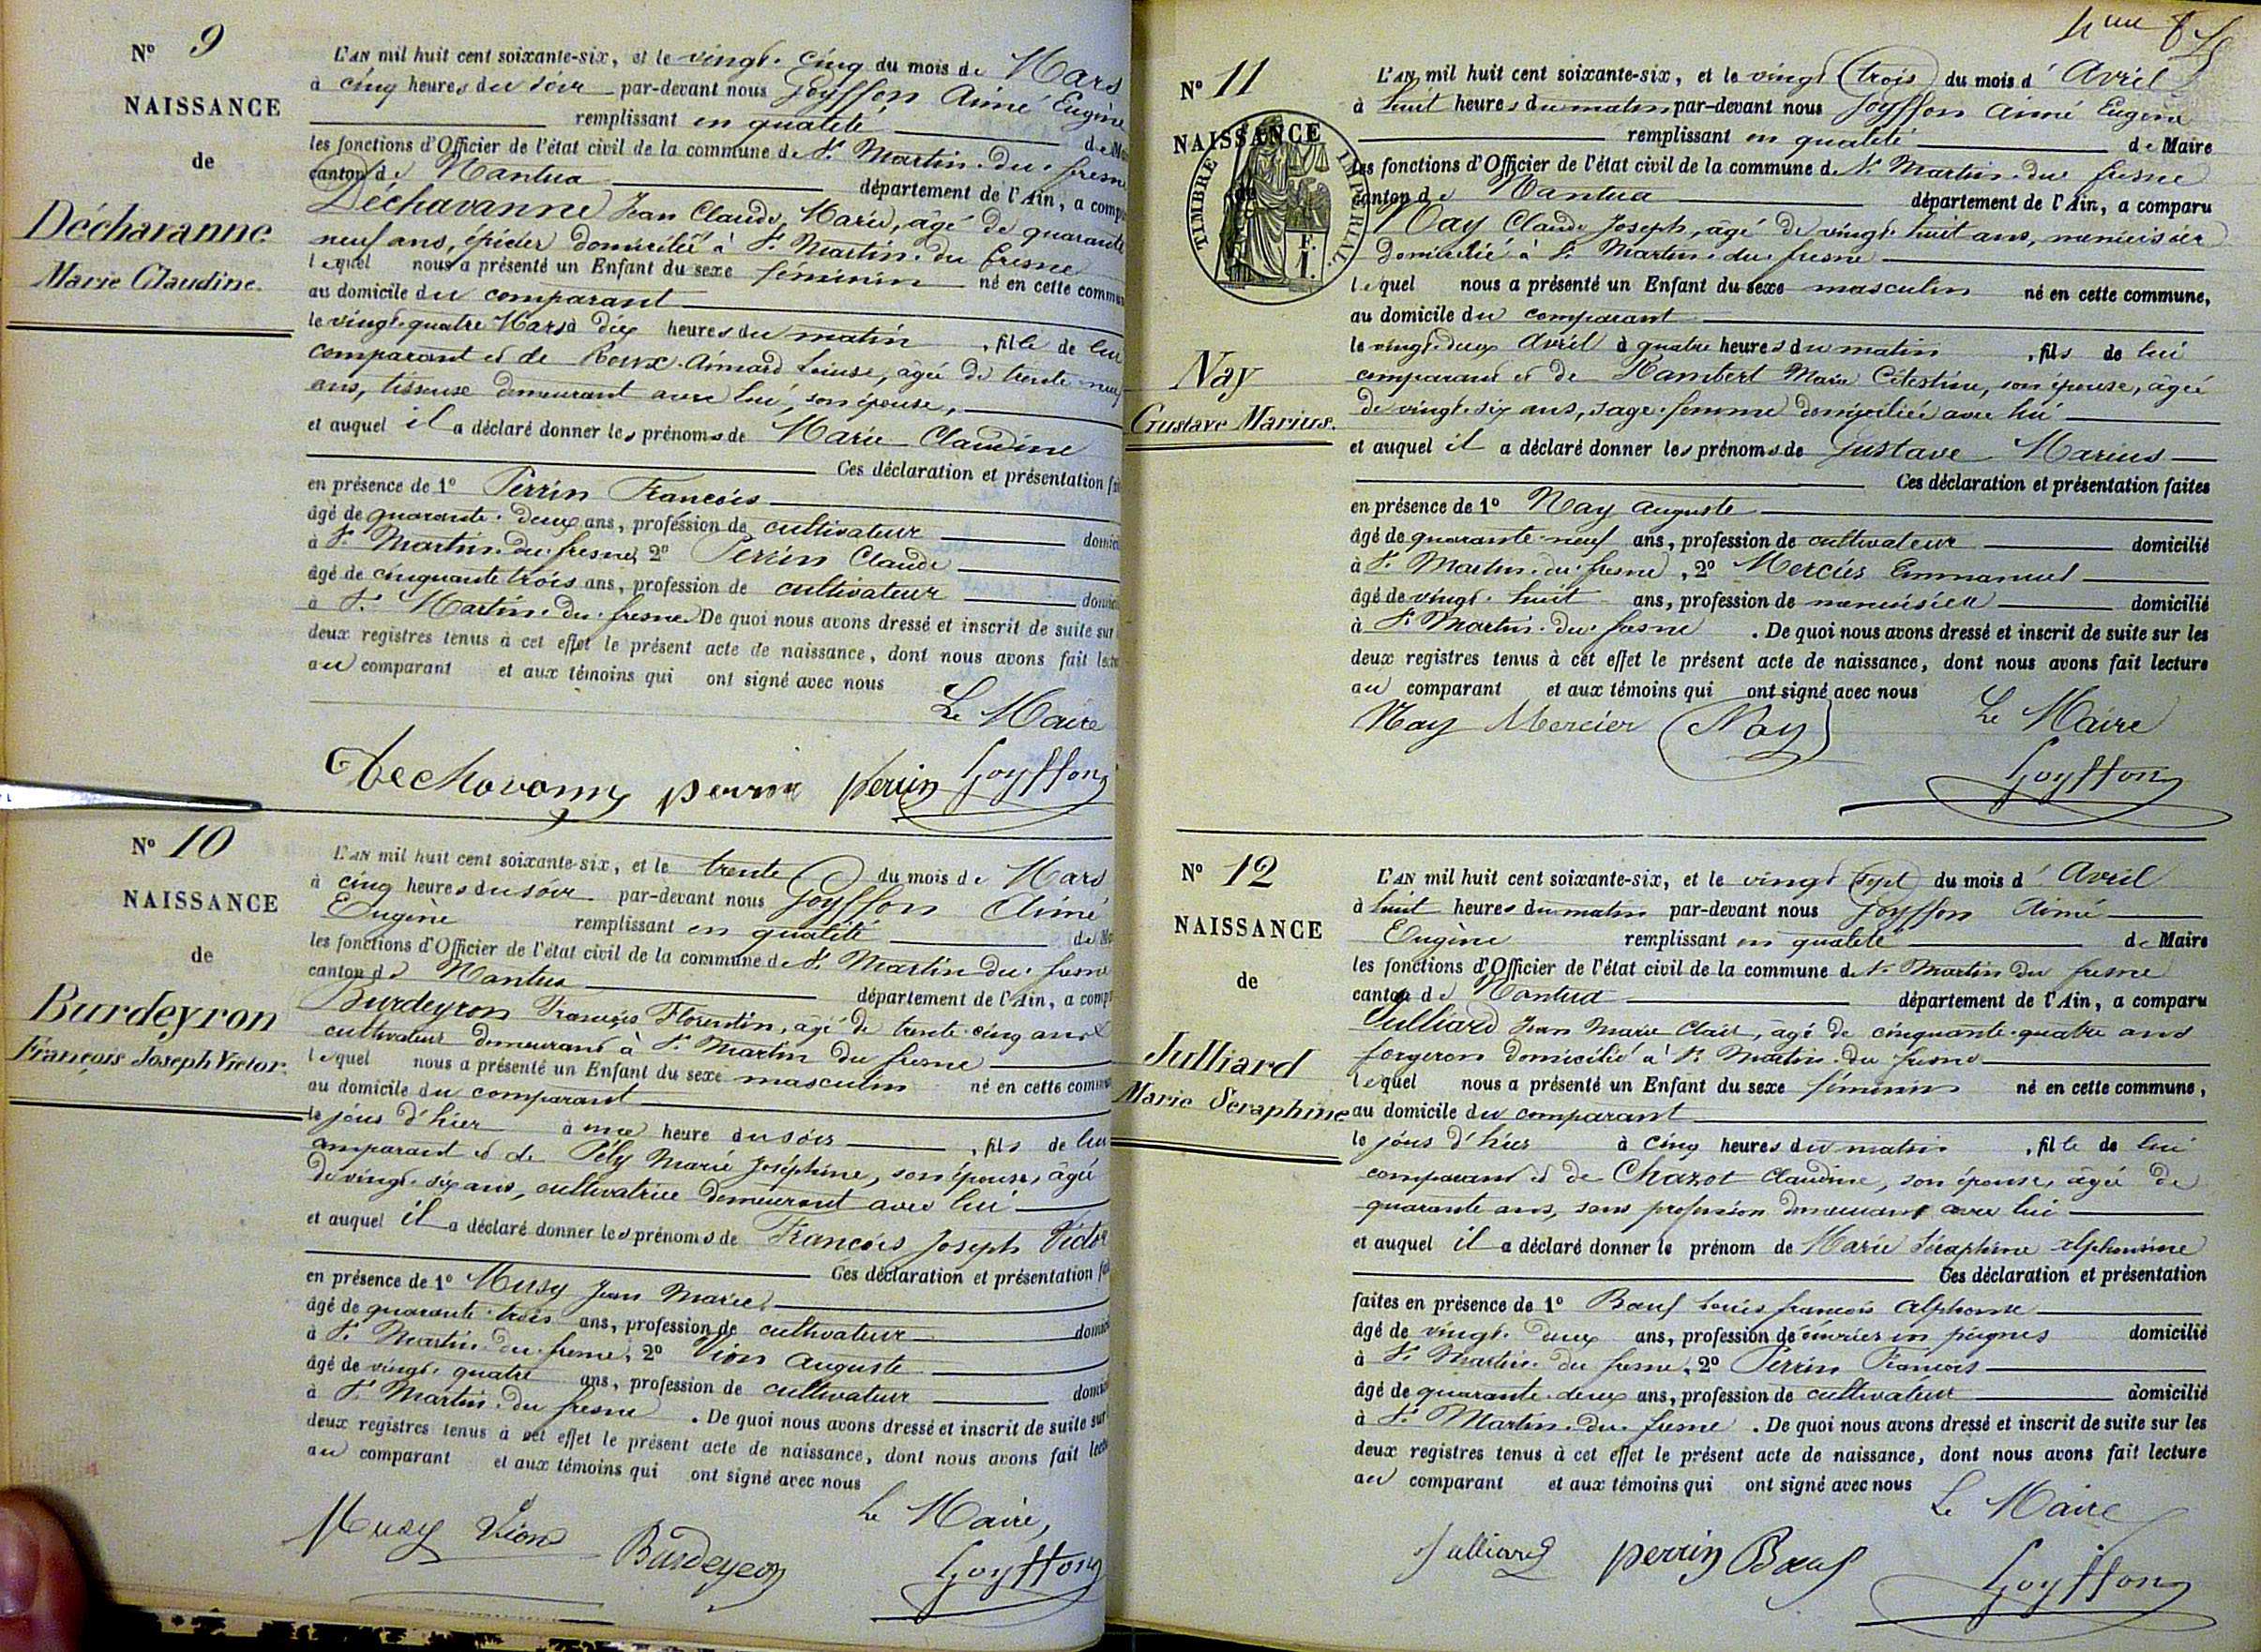 N° 9
NAISSANCE
de
Décharanne
Marie Claudine.
L'AN mil huit cent soixante-six, et le vingt-cinq du mois de Mars
à cinq heures du soir par-devant nous Goyffon Aimé Eugène
remplissant en qualité de
les fonctions d'Officier de l'état civil de la commune de St Martin-du-fresne
canton de Nantua département de l'Ain, a comp
Déchavanne Jean Claude Marie, âgé de quarante
neuf ans, épicier domicilié à St Martin-du fresne
lequel nous a présenté un Enfant du sexe féminin né en cette commu
au domicile du comparant
le vingt-quatre Mars à dix heures du matin, fille de lui
comparant et de Roux-Aimard Louise, âgée de trente-neuf
ans, tisseuse demeurant avec lui, son épouse,
et auquel il a déclaré donner les prénoms de Marie Claudine
Ces déclaration et présentation fai
en présence de 1° Perrin François
âgé de quarante-deux ans, profession de cultivateur domici
à St Martin-du-fresne, 2° Perrin Claude
âgé de cinquante trois ans, profession de cultivateur domici
à St Martin-du-fresne De quoi nous avons dressé et inscrit de suite sur
deux registres tenus à cet effet le présent acte de naissance, dont nous avons fait lectu
au comparant et aux témoins qui ont signé avec nous
Le Maire
Dechavanne perrin perrin Goyffon
N° 10
NAISSANCE
de
Burdeyron
François Joseph Victor.
L'AN mil huit cent soixante-six, et le trente du mois de Mars
à cinq heures du soir par-devant nous Goyffon Aimé
Eugène remplissant en qualité de
les fonctions d'Officier de l'état civil de la commune de St Martin du fresne
canton de Nantua département de l'Ain, a comp
Burdeyron François Florentin, âgé de trente-cinq ans
cultivateur demeurant à St Martin du fresne
lequel nous a présenté un Enfant du sexe masculin né en cette commu
au domicile du comparant
le jour d'hier à une heure du soir, fils de lui
comparant et de Pély Marie Joséphine, son épouse, âgée
de vingt-six ans, cultivatrice demeurant avec lui
et auquel il a déclaré donner les prénoms de François Joseph Victor
Ces déclaration et présentation fai
en présence de 1° Musy Jean Marie
âgé de quarante-trois ans, profession de cultivateur domici
à St Martin-du-fresne, 2° Vion Auguste
âgé de vingt-quatre ans, profession de cultivateur domici
à St Martin-du fresne. De quoi nous avons dressé et inscrit de suite sur
deux registres tenus à cet effet le présent acte de naissance, dont nous avons fait lectu
au comparant et aux témoins qui ont signé avec nous
Le Maire,
Musy Vion Burdeyron Goyffon
N° 11
NAISSANCE
TIMBRE IMPERIAL.
F. I.
Nay
Gustave Marius.
L'AN mil huit cent soixante-six, et le vingt trois du mois d'Avril
à huit heures du matin par-devant nous Goyffon Aimé Eugène
remplissant en qualité de Maire
les fonctions d'Officier de l'état civil de la commune de St Martin-du fresne
canton de Nantua département de l'Ain, a comparu
Nay Claude Joseph, âgé de vingt-huit ans, menuisier
domicilié à St Martin-du-fresne
lequel nous a présenté un Enfant du sexe masculin né en cette commune,
au domicile du comparant
le vingt-deux Avril à quatre heures du matin, fils de lui
comparant et de Rambert Marie Célestine, son épouse, âgée
de vingt-six ans, sage-femme domiciliée avec lui
et auquel il a déclaré donner les prénoms de Gustave Marius
Ces déclaration et présentation faites
en présence de 1° Nay Auguste
âgé de quarante-neuf ans, profession de cultivateur domicilié
à St Martin-du-fresne, 2° Mercier Emmanuel
âgé de vingt-huit ans, profession de menuisier domicilié
à St Martin-du-fresne. De quoi nous avons dressé et inscrit de suite sur les
deux registres tenus à cet effet le présent acte de naissance, dont nous avons fait lecture
au comparant et aux témoins qui ont signé avec nous
Le Maire
Nay Mercier Nay
Goyffon
N° 12
NAISSANCE
de
Julliard
Marie Seraphine
L'AN mil huit cent soixante-six, et le vingt sept du mois d'Avril
à huit heures du matin par-devant nous Goyffon Aimé
Eugène remplissant en qualité de Maire
les fonctions d'Officier de l'état civil de la commune de St Martin du fresne
canton de Nantua département de l'Ain, a comparu
Julliard Jean Marie Clair, âgé de cinquante-quatre ans
forgeron domicilié à St Martin-du fresne
lequel nous a présenté un Enfant du sexe féminin né en cette commune,
au domicile du comparant
le jour d'hier à cinq heures du matin, fille de lui
comparant et de Chazot Claudine, son épouse, âgée de
quarante ans, sans profession demeurant avec lui
et auquel il a déclaré donner le prénom de Marie Séraphine Alphonsine
Ces déclaration et présentation
faites en présence de 1° Bœuf Louis françois Alphonse
âgé de vingt-deux ans, profession de ouvrier en peignes domicilié
à St Martin-du fresne, 2° Perrin François
âgé de quarante-deux ans, profession de cultivateur domicilié
à St Martin-du-fresne. De quoi nous avons dressé et inscrit de suite sur les
deux registres tenus à cet effet le présent acte de naissance, dont nous avons fait lecture
au comparant et aux témoins qui ont signé avec nous
Le Maire
Julliard perrin Bœuf
Goyffon